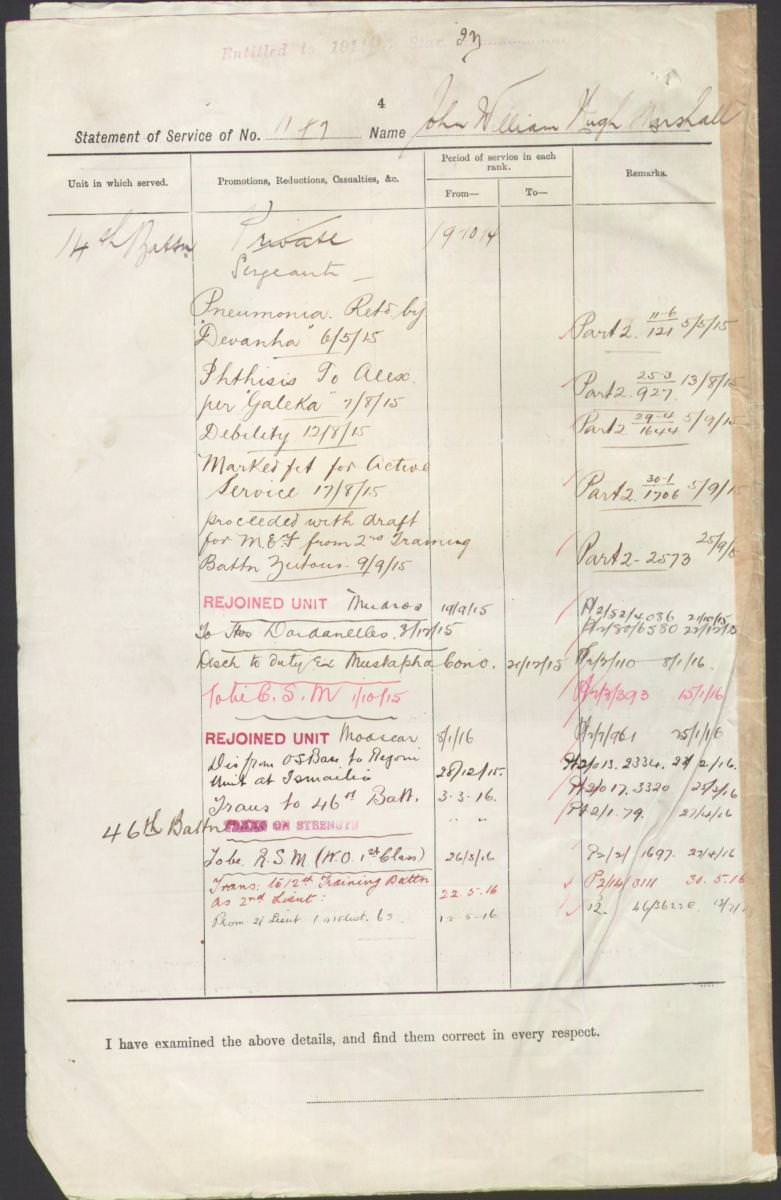 Entitled to 191 Star
4
Statement of Service of No. Name John William Hugh Marshall
Unit in which served.
Promotions, Reductions, Casualties, &c.
Period of service in each rank.
From—
To—
Remarks.
14th Battn Private 19-10-14
Sergeant —
Pneumonia. Retd by
"Devanha" 6/5/15 Part 2. 11-6/121 5/5/15
Phthisis To Alex.
per "Galeka" 7/8/15 Part 2. 25-3/927. 13/8/15
Debility 12/8/15 Part 2 29-4/1644 5/9/15
Marked fit for Active
Service 17/8/15 Part 2. 30-1/1706 5/9/15
proceeded with draft
for M.E.F from 2nd Training
Battn Zeitoun 9/9/15 Part 2-2573 25/9/
REJOINED UNIT Mudros 19/9/15
To Hos Dardanelles. 8/12/15
Disch to duty Ex Mustapha Conv. 21/12/15 8/1/16.
To be C.S.M 1/10/15 15/1/16
REJOINED UNIT Moascar 8/1/16 25/1/16
Dis from OS Base to Rejoin
Unit at Ismailia 28/12/15. 2334.
Trans to 46th Batt. 3-3-16. 3320
46th Battn TAKEN ON STRENGTH " " 79.
To be R.S.M (W.O. 1st Class) 26/3/16 1697.
Trans: to 12th Training Battn
as 2nd Lieut: 22.5.16 30.5.16
Prom 2/Lieut
I have examined the above details, and find them correct in every respect.